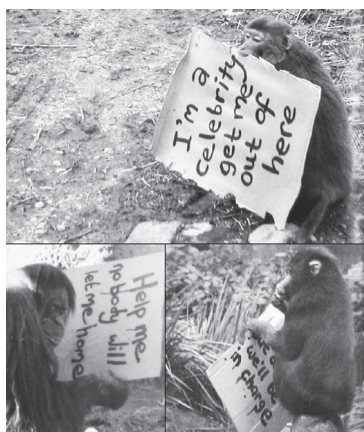 I'm a
celebrity
get me
out of
here
Help me
nobody will
let me home
we'll be
in charge